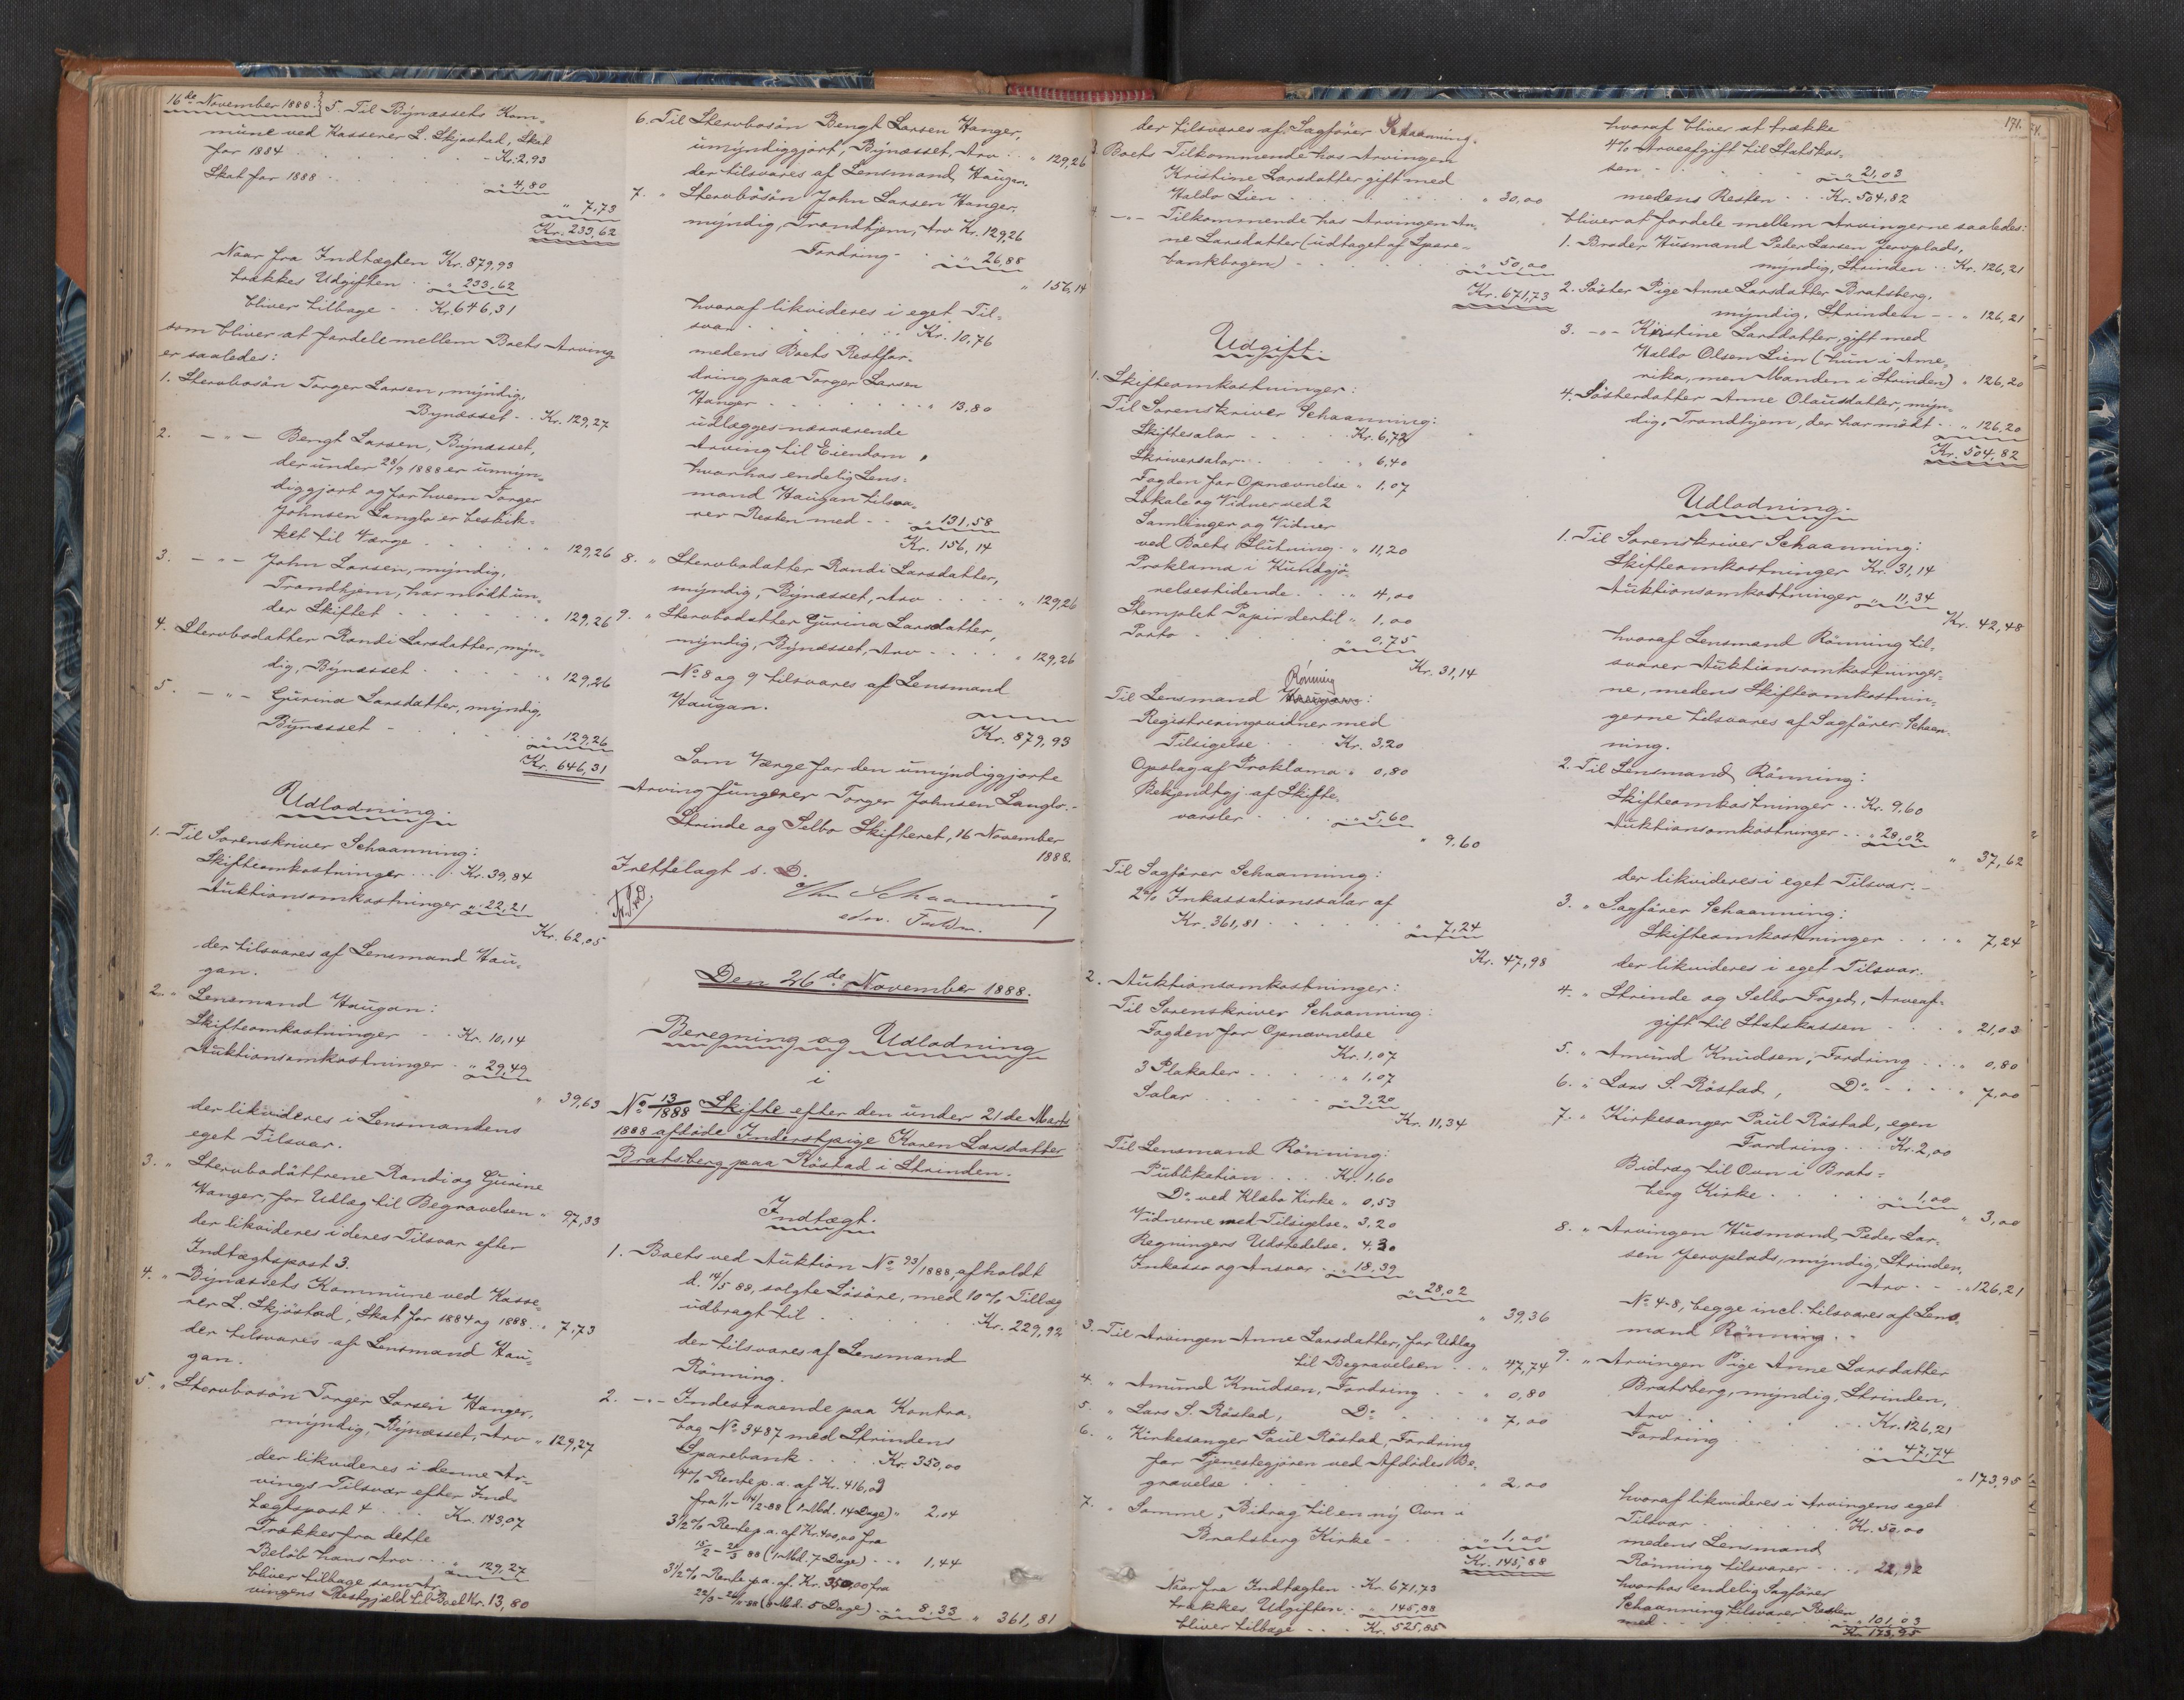 16de November 1888.} 5. Til Bynæssets Kom-
mune ved Kasserer L. Skjøstad, Skat
for 1884 . . . Kr. 2.93
Skat for 1888 . . . " 4,80
" 7,73
Kr. 233,62
Naar fra Indtægten Kr. 879,93
trækkes Udgiften . . " 233,62
bliver tilbage . . Kr. 646,31
som bliver at fordele mellem Boets Arving
er saaledes:
1. Stervbosön Torger Larsen, myndig,
Bynæsset . . Kr. 129,27
2. — " — Bengt Larsen, Bynæsset,
der under 28/9 1888 er umyn-
diggjort og for hvem Torger
Johnsen Langlo er beskik-
ket til Værge . . . " 129,26
3. — " — John Larsen, myndig,
Trondhjem, har mödt un-
der Skiftet . . . " 129,26
4. Stervbodatter Randi Larsdatter, myn-
dig, Bynæsset . . . " 129,26
5. — " — Gurina Larsdatter, myndig,
Bynæsset . . . " 129,26
Kr. 646,31
Udlodning.
1. Til Sorenskriver Schaanning:
Skifteomkostninger . . . Kr. 39,84
Auktionsomkostninger " 22,21
Kr. 62,05
der tilsvares af Lensmand Hau-
gan.
2. " Lensmand Haugan:
Skifteomkostninger . . Kr. 10,14
Auktionsomkostninger . " 29,49
" 39,63
der likvideres i Lensmandens
eget Tilsvar.
3. " Stervbodöttrene Randi og Gurine
Hanger, for Udlæg til Begravelsen " 97,33
der likvideres i deres Tilsvar efter
Indtægtspost 3.
4. " Bynæssets Kommune ved Kasse-
rer L. Skjöstad, Skat for 1884 og 1888 . " 7,73
der tilsvares af Lensmand Hau-
gan.
5. " Stervbosön Torger Larsen Hanger,
myndig, Bynæsset, Arv " 129,27
der likvideres i denne Ar-
vings Tilsvar efter Ind-
tægtspost 4 . . . Kr. 143,07
Trækkes fra dette
Belöb hans Arv . . . " 129,27
bliver tilbage som Ar-
vingens Restgjæld til Boet Kr. 13,80
6. Til Stervbosön Bengt Larsen Hanger,
umyndiggjort, Bynæsset, Arv . . " 129,26
der tilsvares af Lensmand Haugan.
7. " Stervbosön John Larsen Hanger,
myndig, Trondhjem, Arv Kr. 129,26
Fordring . . . " 26,88
" 156,14
hvoraf likvideres i eget Til-
svar . . . Kr. 10,76
medens Boets Restfor-
dring paa Torger Larsen
Hanger . . . " 13,80
udlægges nærværende
Arving til Eiendom,
hvorhos endelig Lens-
mand Haugan tilsva-
rer Resten med . . " 131,58
Kr. 156,14
8. " Stervbodatter Randi Larsdatter,
myndig, Bynæsset, Arv . . . " 129,26
9. " Stervbodatter Gurina Larsdatter,
myndig, Bynæsset, Arv . . . " 129,26
No 8 og 9 tilsvares af Lensmand
Haugan.
Kr. 879,93
Som Værge for den umyndiggjorte
Arving fungerer Torger Johnsen Langlo.-
Strinde og Selbo Skifteret, 16 November
1888.
Irettelagt s. D.
Schaanning
Den 26de November 1888.
Beregning og Udlodning
i
No 13/1888 Skifte efter den under 21de Marts
1888 aftöde Inderstpige Karen Larsdatter
Bratsberg paa Röstad i Strinden.
Indtægt.
1. Boets ved Auktion No 93/1888, afholdt
d. 14/5 88, solgte Lösöre, med 10 % Tillæg
udbragt til . . . Kr. 229,92
der tilsvares af Lensmand
Rönning.
2. — " — Indestaaende paa Kontra-
bog No 3487 med Strindens
Sparebank . . . Kr. 350,00
4 % Rente p. a. af Kr. 416,09
fra 1/1 - 14/2 88 (1 Md. 14 Dage) " 2,04
3 1/2 % Rente p. a. af Kr. 400,00 fra
15/2 - 21/3 88 (1 Md. 7 Dage) . . " 1,44
3 1/2 % Rente p. a. af Kr. 350,00 fra
22/3 - 26/11 88 (8 Md. 5 Dage) . . " 8,33 " 361,81
171.
der tilsvares af Sagförer Schaanning.
3. Boets Tilkommende hos Arvingen
Kristine Larsdatter gift med
Haldo Lien . . . " 30,00
4. — " — Tilkommende hos Arvingen An-
ne Larsdatter (udtaget af Spare-
bankbogen) . . . " 50,00
Kr. 671,73
Udgift.
1. Skifteomkostninger:
Til Sorenskriver Schaanning:
Skiftesalar . . . Kr. 6,72
Skriversalar . . . " 6,40
Fogden for Opnævnelse " 1,07
Lokale og Vidner ved 2
Samlinger og Vidner
ved Boets Slutning . " 11,20
Proklama i Kundgjö-
relsestidende . . . " 4,00
Stemplet Papir dertil " 1,00
Porto . . . " 0,75
Kr. 31,14
Rönning
Til Lensmand Haugan:
Registreringsvidner med
Tilsigelse . . . Kr. 3,20
Opslag af Proklama " 0,80
Bekjendtgj. af Skifte-
varsler . . . " 5,60
" 9,60
Til Sagförer Schaanning:
2 % Inkassationssalar af
Kr. 361,81 . . . " 7,24
Kr. 47,98
2. Auktionsomkostninger:
Til Sorenskriver Schaanning:
Fogden for Opnævnelse
Kr. 1,07
3 Plakater . . . " 1,07
Salar . . . " 9,20
Kr. 11,34
Til Lensmand Rönning:
Publikation . . . Kr. 1,60
Do ved Klæbo Kirke " 0,53
Vidnerne med Tilsigelse " 3,20
Regningers Udstedelse " 4,30
Inkasso og Ansvar . . " 18,39
" 28,02
" 39,36
3. Til Arvingen Anne Larsdatter, for Udlæg
til Begravelsen . . " 47,74
4. " Amund Knudsen, Fordring . . " 0,80
5. " Lars S. Röstad, Do . . " 7,00
6. " Kirkesanger Paul Röstad, Fordring
for Tjenestegjören ved Afdödes Be-
gravelse . . . " 2,00
7. " Samme, Bidrag til en ny Ovn i
Bratsberg Kirke . . " 1,00
Kr. 145,88
Naar fra Indtægten . Kr. 671,73
trækkes Udgiften . " 145,88
bliver tilbage . . . Kr. 525,85
hvoraf bliver at trække
4 % Arveafgift til Statskas-
sen . . . " 21,03
medens Resten . . . Kr. 504,82
bliver at fordele mellem Arvingerne saaledes:
1. Broder Husmand Peder Larsen Jervplads,
myndig, Strinden . . Kr. 126,21
2. Söster Pige Anne Larsdatter Bratsberg,
myndig, Strinden . . " 126,21
3. — " — Kristine Larsdatter, gift med
Haldo Olsen Lien (hun i Ame-
rika, men Manden i Strinden) " 126,20
4. Sösterdatter Anne Olausdatter, myn-
dig, Trondhjem, der har mödt . . " 126,20
Kr. 504,82
Udlodning.
1. Til Sorenskriver Schaanning:
Skifteomkostninger Kr. 31,14
Auktionsomkostninger " 11,34
Kr. 42,48
hvoraf Lensmand Rönning til-
svarer Auktionsomkostninger-
ne, medens Skifteomkostnin-
gerne tilsvares af Sagförer Schaan-
ning.
2. Til Lensmand Rönning:
Skifteomkostninger . . Kr. 9,60
Auktionsomkostninger . . " 28,02
" 37,62
der likvideres i eget Tilsvar. -
3. " Sagförer Schaanning:
Skifteomkostninger . . . " 7,24
der likvideres i eget Tilsvar.
4. " Strinde og Selbo Foged, Arveaf-
gift til Statskassen . . . " 21,03
5. " Amund Knudsen, Fordring . . . " 0,80
6. " Lars S. Röstad, Do . . . " 7,00
7. " Kirkesanger Paul Röstad, egen
Fordring . . . Kr. 2,00
Bidrag til Ovn i Brats-
berg Kirke . . . " 1,00
" 3,00
8. " Arvingen Husmand Peder Lar-
sen Jervplads, myndig, Strinden,
Arv . . . " 126,21
No 4-8, begge incl. tilsvares af Lens-
mand Rönning.
9. " Arvingen Pige Anne Larsdatter
Bratsberg, myndig, Strinden,
Arv . . . Kr. 126,21
Fordring . . . " 47,74
" 173,95
hvoraf likvideres i Arvingens eget
Tilsvar . . . Kr. 50,00
medens Lensmand
Rönning tilsvarer . . . " 22,92
hvorhos endelig Sagförer
Schaanning tilsvarer Resten
med . . . " 101,03
Kr. 173,95